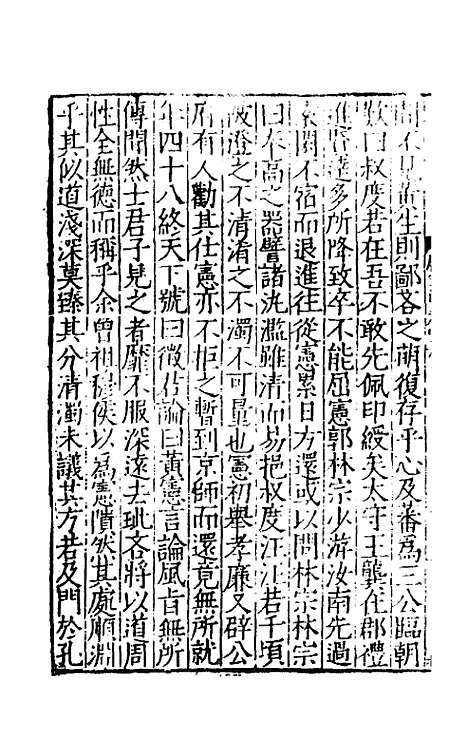 間不見黃生則鄙吝之萌復存乎心及蕃為三公臨朝
歎曰叔度若在吾不敢先佩印綬矣太守王龔在郡禮
進賢達多所降致卒不能屈憲郭林宗少游汝南先過
袁閬不宿而退進往從憲累日方還或以問林宗林宗
曰奉高之器譬諸氿濫雖清而易挹叔度汪汪若千頃
陂澄之不清淆之不濁不可量也憲初舉孝廉又辟公
府有人勸其仕憲亦不拒之暫到京師而還竟無所就
年四十八終天下號曰徵君論曰黃憲言論風旨無所
傳聞然士君子見之者靡不服深遠去玼吝將以道周
性全無德而稱乎余曾祖穆侯以為憲隤然其處順淵
乎其似道淺深莫臻其分清濁未議其方若及門於孔